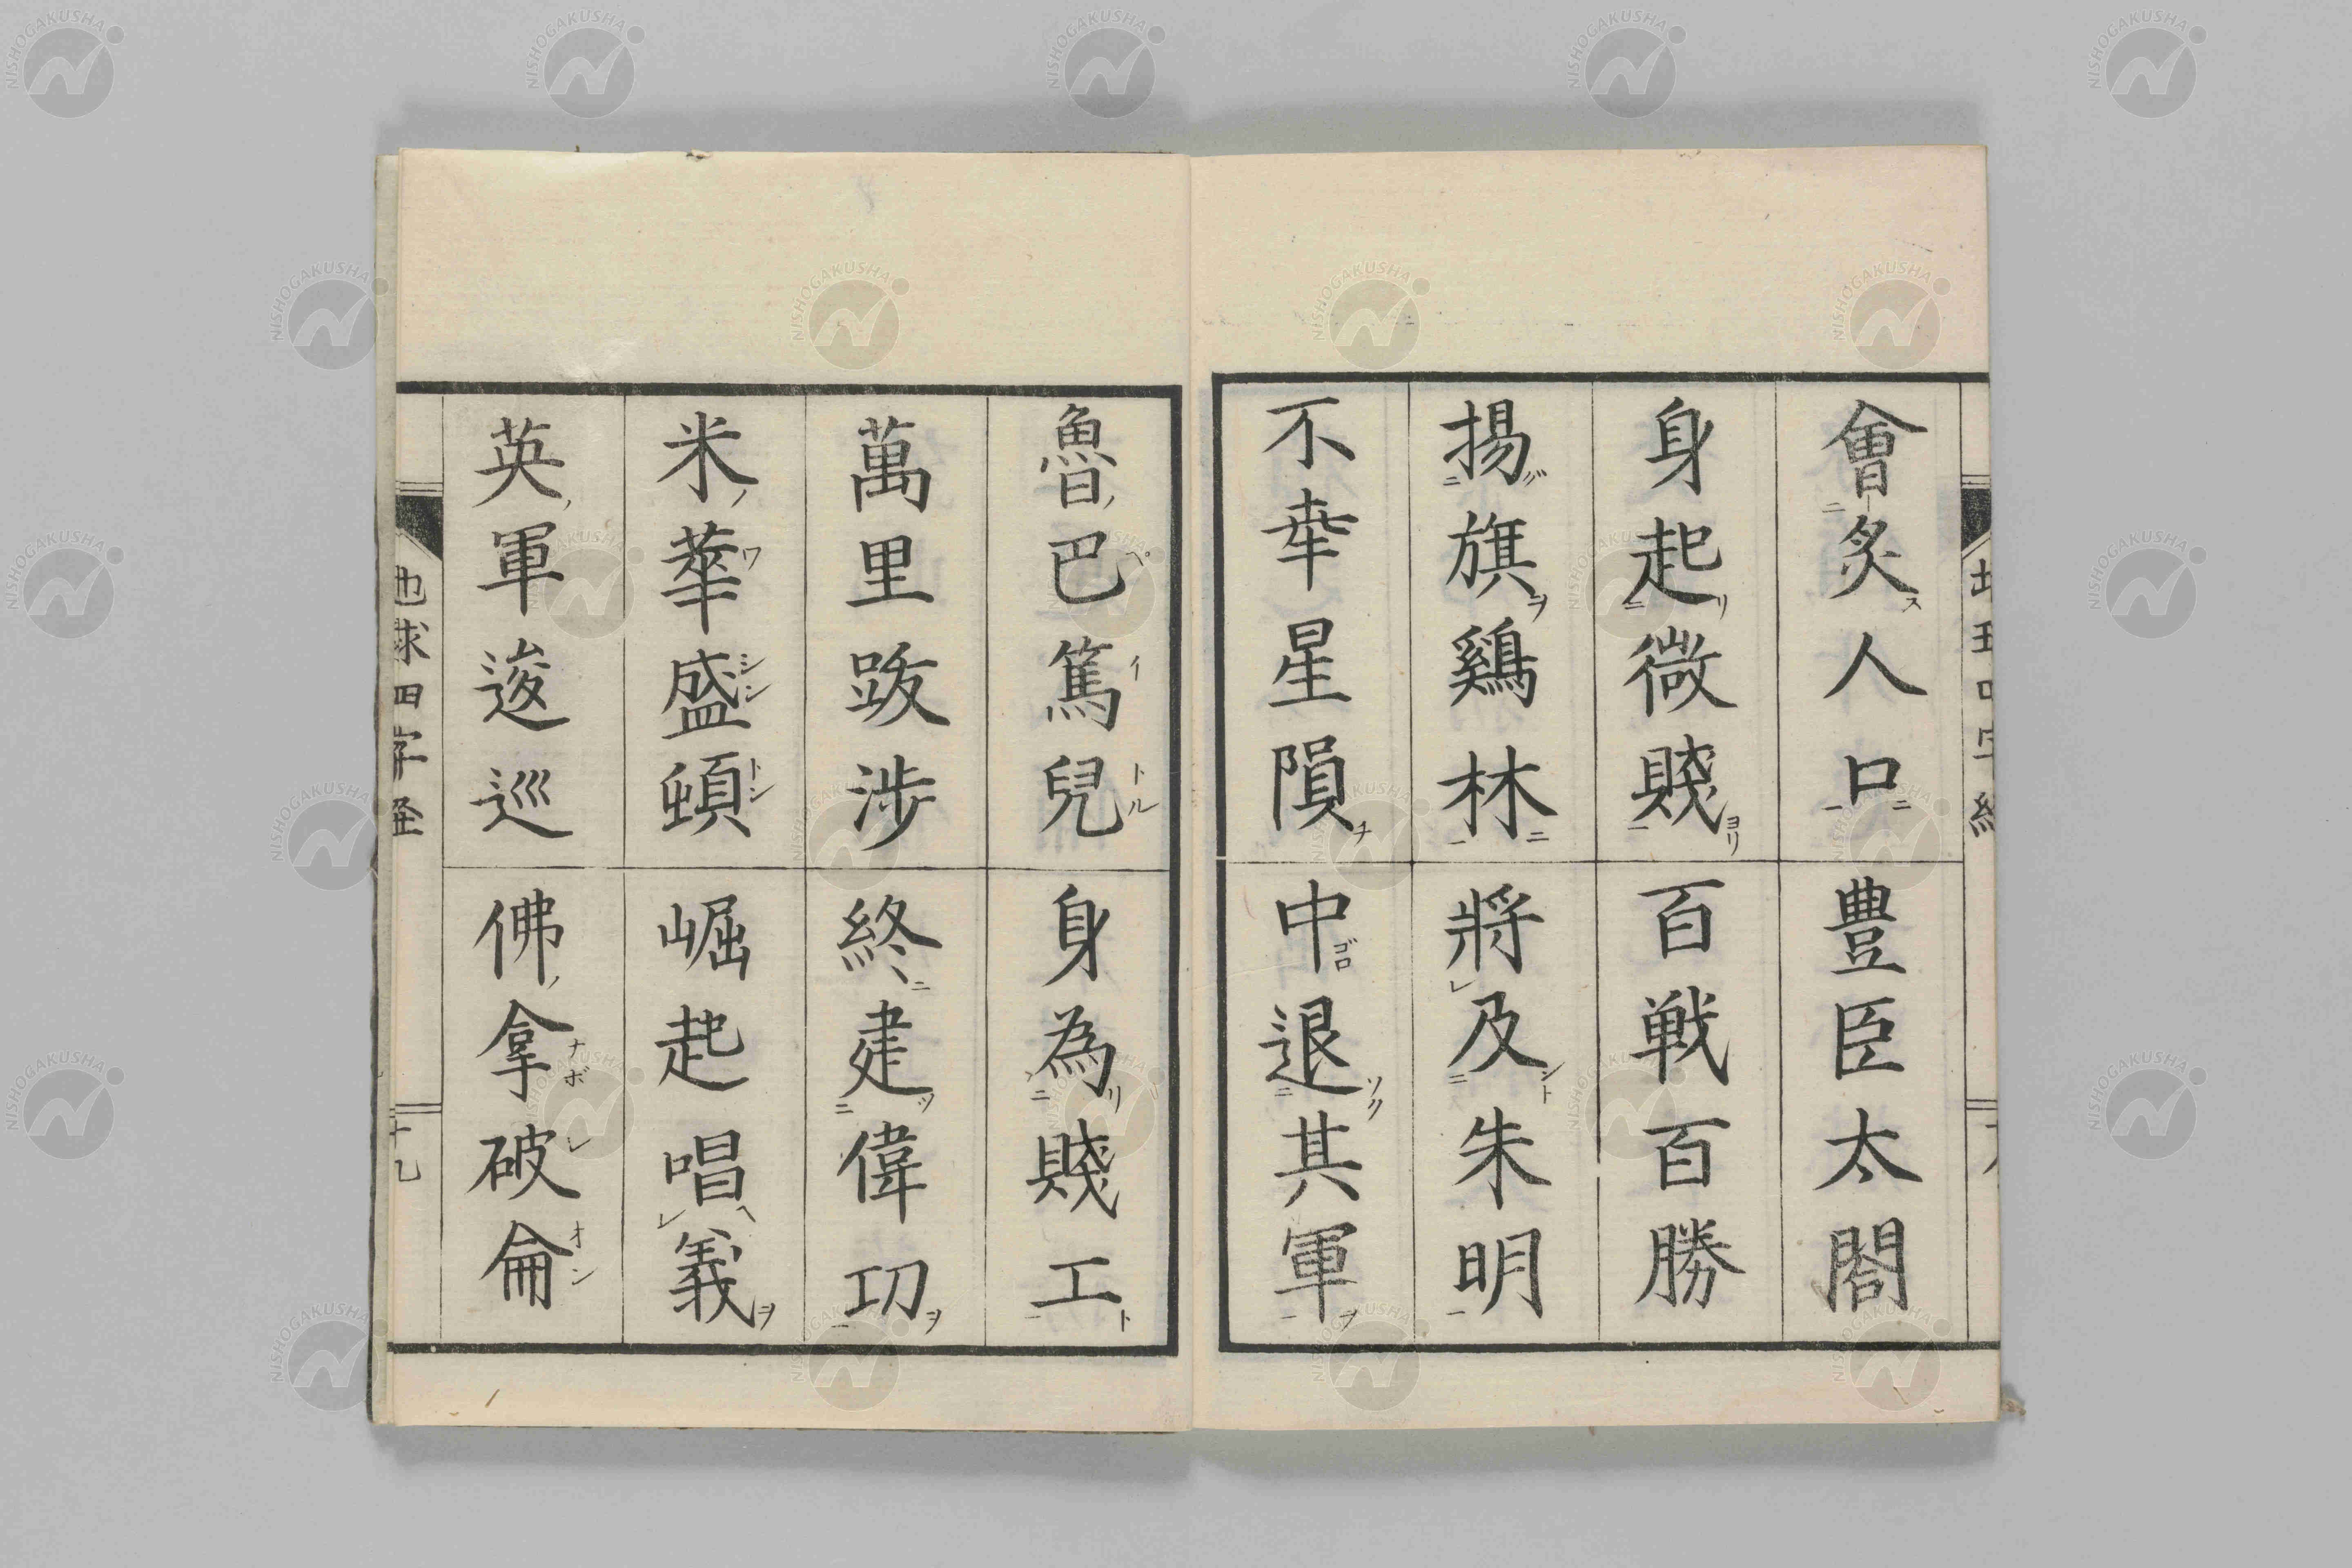 會炙人口 豊臣太閤
身起微賤 百戦百勝
揚旗鷄林 將及朱明
不幸星隕 中退其軍
魯巴篤兒 身為賤工
萬里跋涉 終建偉功
米華盛頓 崛起唱義
英軍逡巡 佛拿破侖
地球四字経
十九
NISHOGAKUSHA